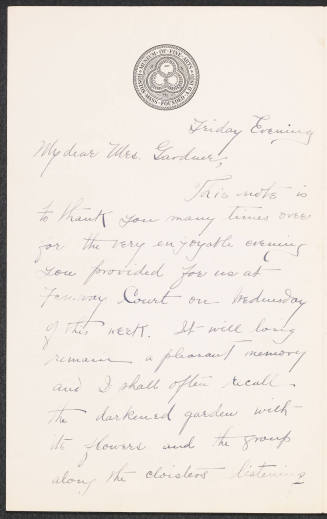 MUSEUM OF FINE ARTS
BOSTON MASS FOUNDED A.D. 1870
Friday Evening
My dear Mrs. Gardner,
This note is
to thank you many times over
for the very enjoyable evening
you provided for us at
Fenway Court on Wednesday
of this week. It will long
remain a pleasant memory
and I shall often recall
the darkened garden with
its flowers and the group
along the cloisters listening